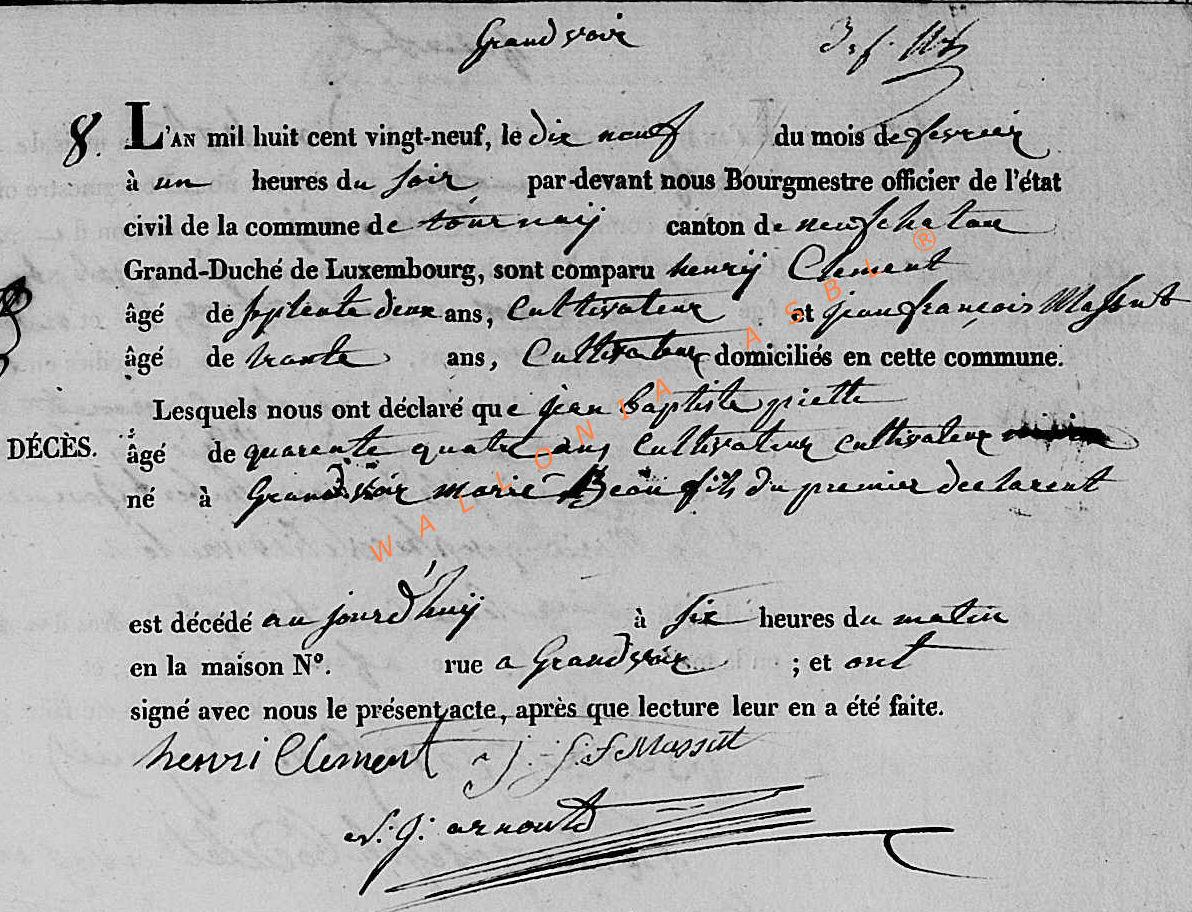 Grandvoir
8. L'AN mil huit cent vingt-neuf, le dix neuf du mois de fevrier
à un heures du soir par-devant nous Bourgmestre officier de l'état
civil de la commune de tournaij canton de neufchatau
Grand-Duché de Luxembourg, sont comparu henrij Clement
âgé de septente deux ans, Cultivateur et jean françois Massut
âgé de trante ans, Cultivateur domiciliés en cette commune.
Lesquels nous ont déclaré que jean baptiste piette
DÉCÈS. âgé de quarente quatre ans Cultivateur cultivateur
né à Grandvoir marié Beau fils du premier declarent
est décédé au jourd'huij à six heures du matin
en la maison N°. rue a Grandvoir ; et ont
signé avec nous le présent acte, après que lecture leur en a été faite.
henri Clement J. F. Massut
arnould
WALLONIA ASBL ®